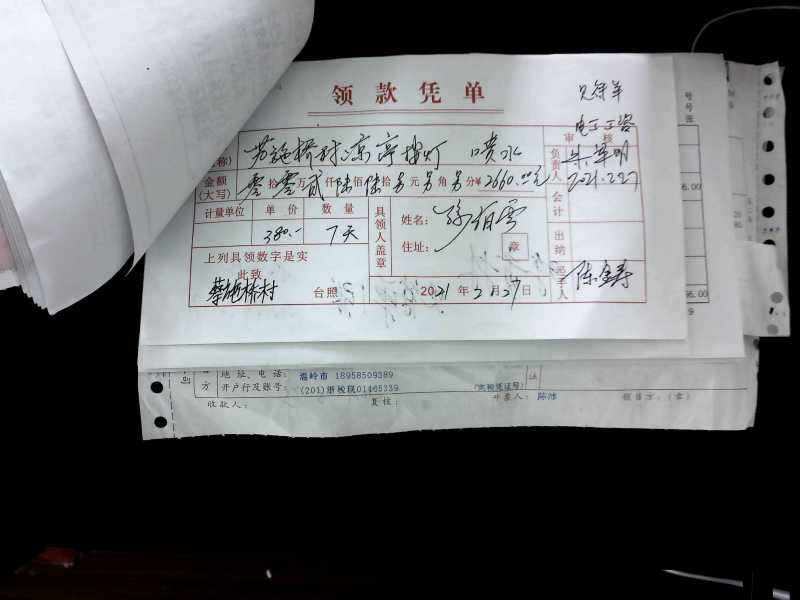 领款凭单
电工工资
审核
称) 施桥村凉亭 灯 喷水
金额(大写) 零拾零万贰仟陆佰陆拾 元 角 分¥2660.00元
负责人
2021.2.27
计量单位 单价 数量
380.- 7天
具领人盖章
姓名:
住址: 章
会计
出纳
上列具领数字是实
此致
蔡施桥村 台照
2021年2月27日
经手人 陈金寿
号
号
张
6.00
6.00
9
方 地址、电话: 温岭市 18958509389
开户行及账号: (201)浙税联01465339
(完税凭证号)
注
收款人: 复核: 开票人: 陈沛 销售方:(章)